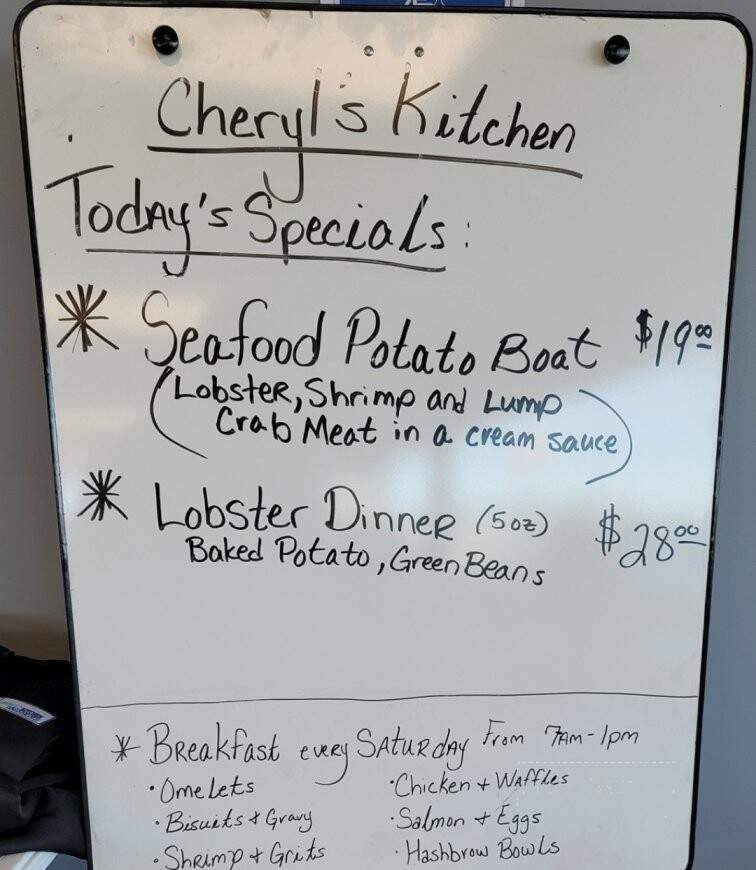 Cheryl's Kitchen
Today's Specials:
* Seafood Potato Boat $19.00
(Lobster, Shrimp and Lump
Crab Meat in a cream sauce)
* Lobster Dinner (5oz) $28.00
Baked Potato, Green Beans
* Breakfast every Saturday From 7AM-1pm
• Omelets
• Chicken + Waffles
• Biscuits + Gravy
• Salmon + Eggs
• Shrimp + Grits
• Hashbrow Bowls